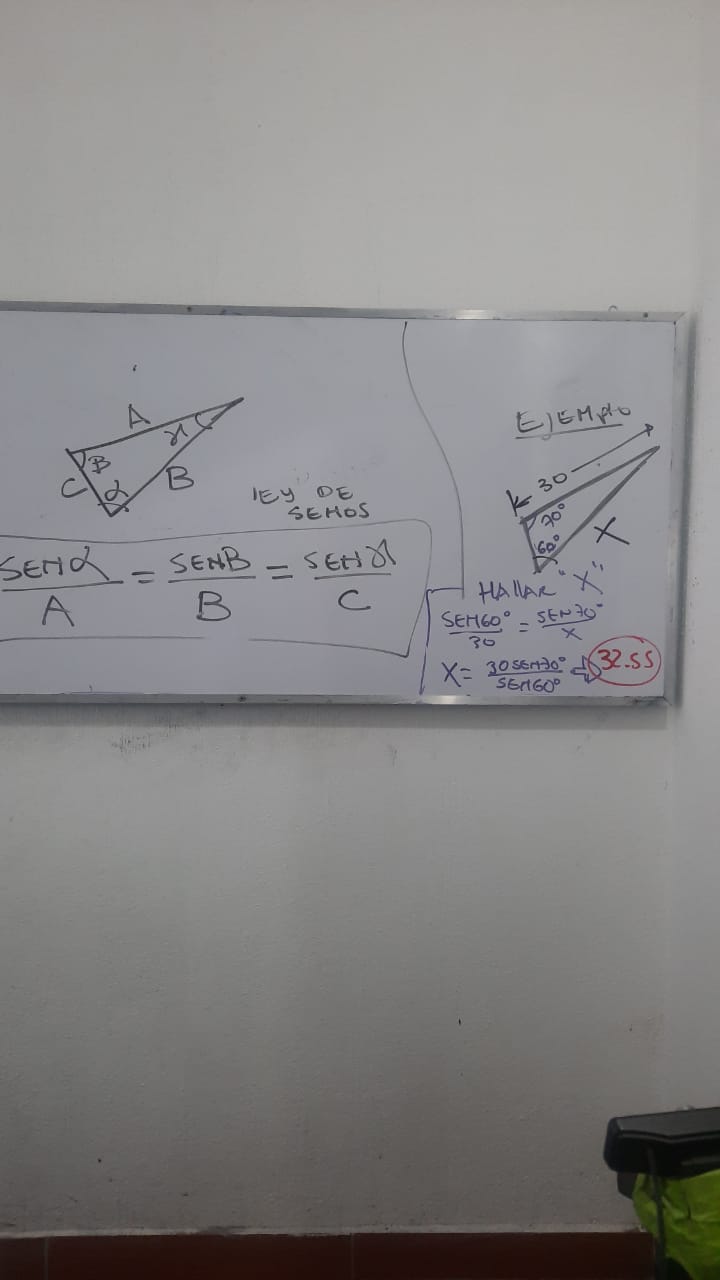 A
γ
B
C
α
B
LEY DE
SENOS
SENα / A = SENB / B = SENγ / C
EJEMPLO
30
70°
60°
X
HALLAR "X"
SEN60° / 30 = SEN70° / X
X = 30SEN70° / SEN60° ⇨ 32.55